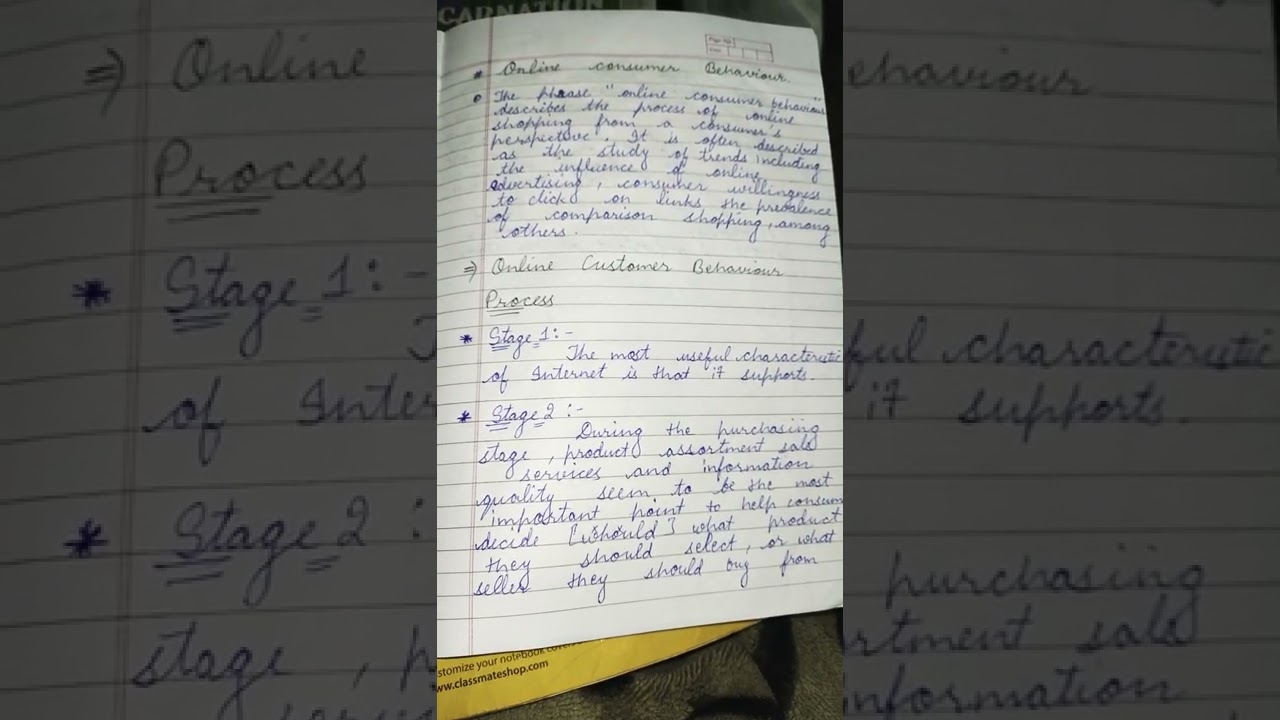 CARNATION
Page No.
Date
* Online consumer Behaviour.
The phrase "online consumer behaviour"
describes the process of online
shopping from a consumer's
perspective. It is often described
as the study of trends including
the influence of online
advertising, consumer willingness
to click on links the prevalence
of comparison shopping, among
others.
⇒ Online Customer Behaviour
Process
* Stage 1:-
The most useful characteristic
of Internet is that it supports.
* Stage 2:-
During the purchasing
stage, product assortment sale
services and information
quality seem to be the most
important point to help consum
decide [should] what product
they should select, or what
seller they should buy from
stomize your notebook covers
ww.classmateshop.com
⇒ Online
Process
* Stage 1:-
of Inter
* Stage 2:
stage, p
ehaviour
ful characteristic
it supports.
purchasing
rtment sale
nformation